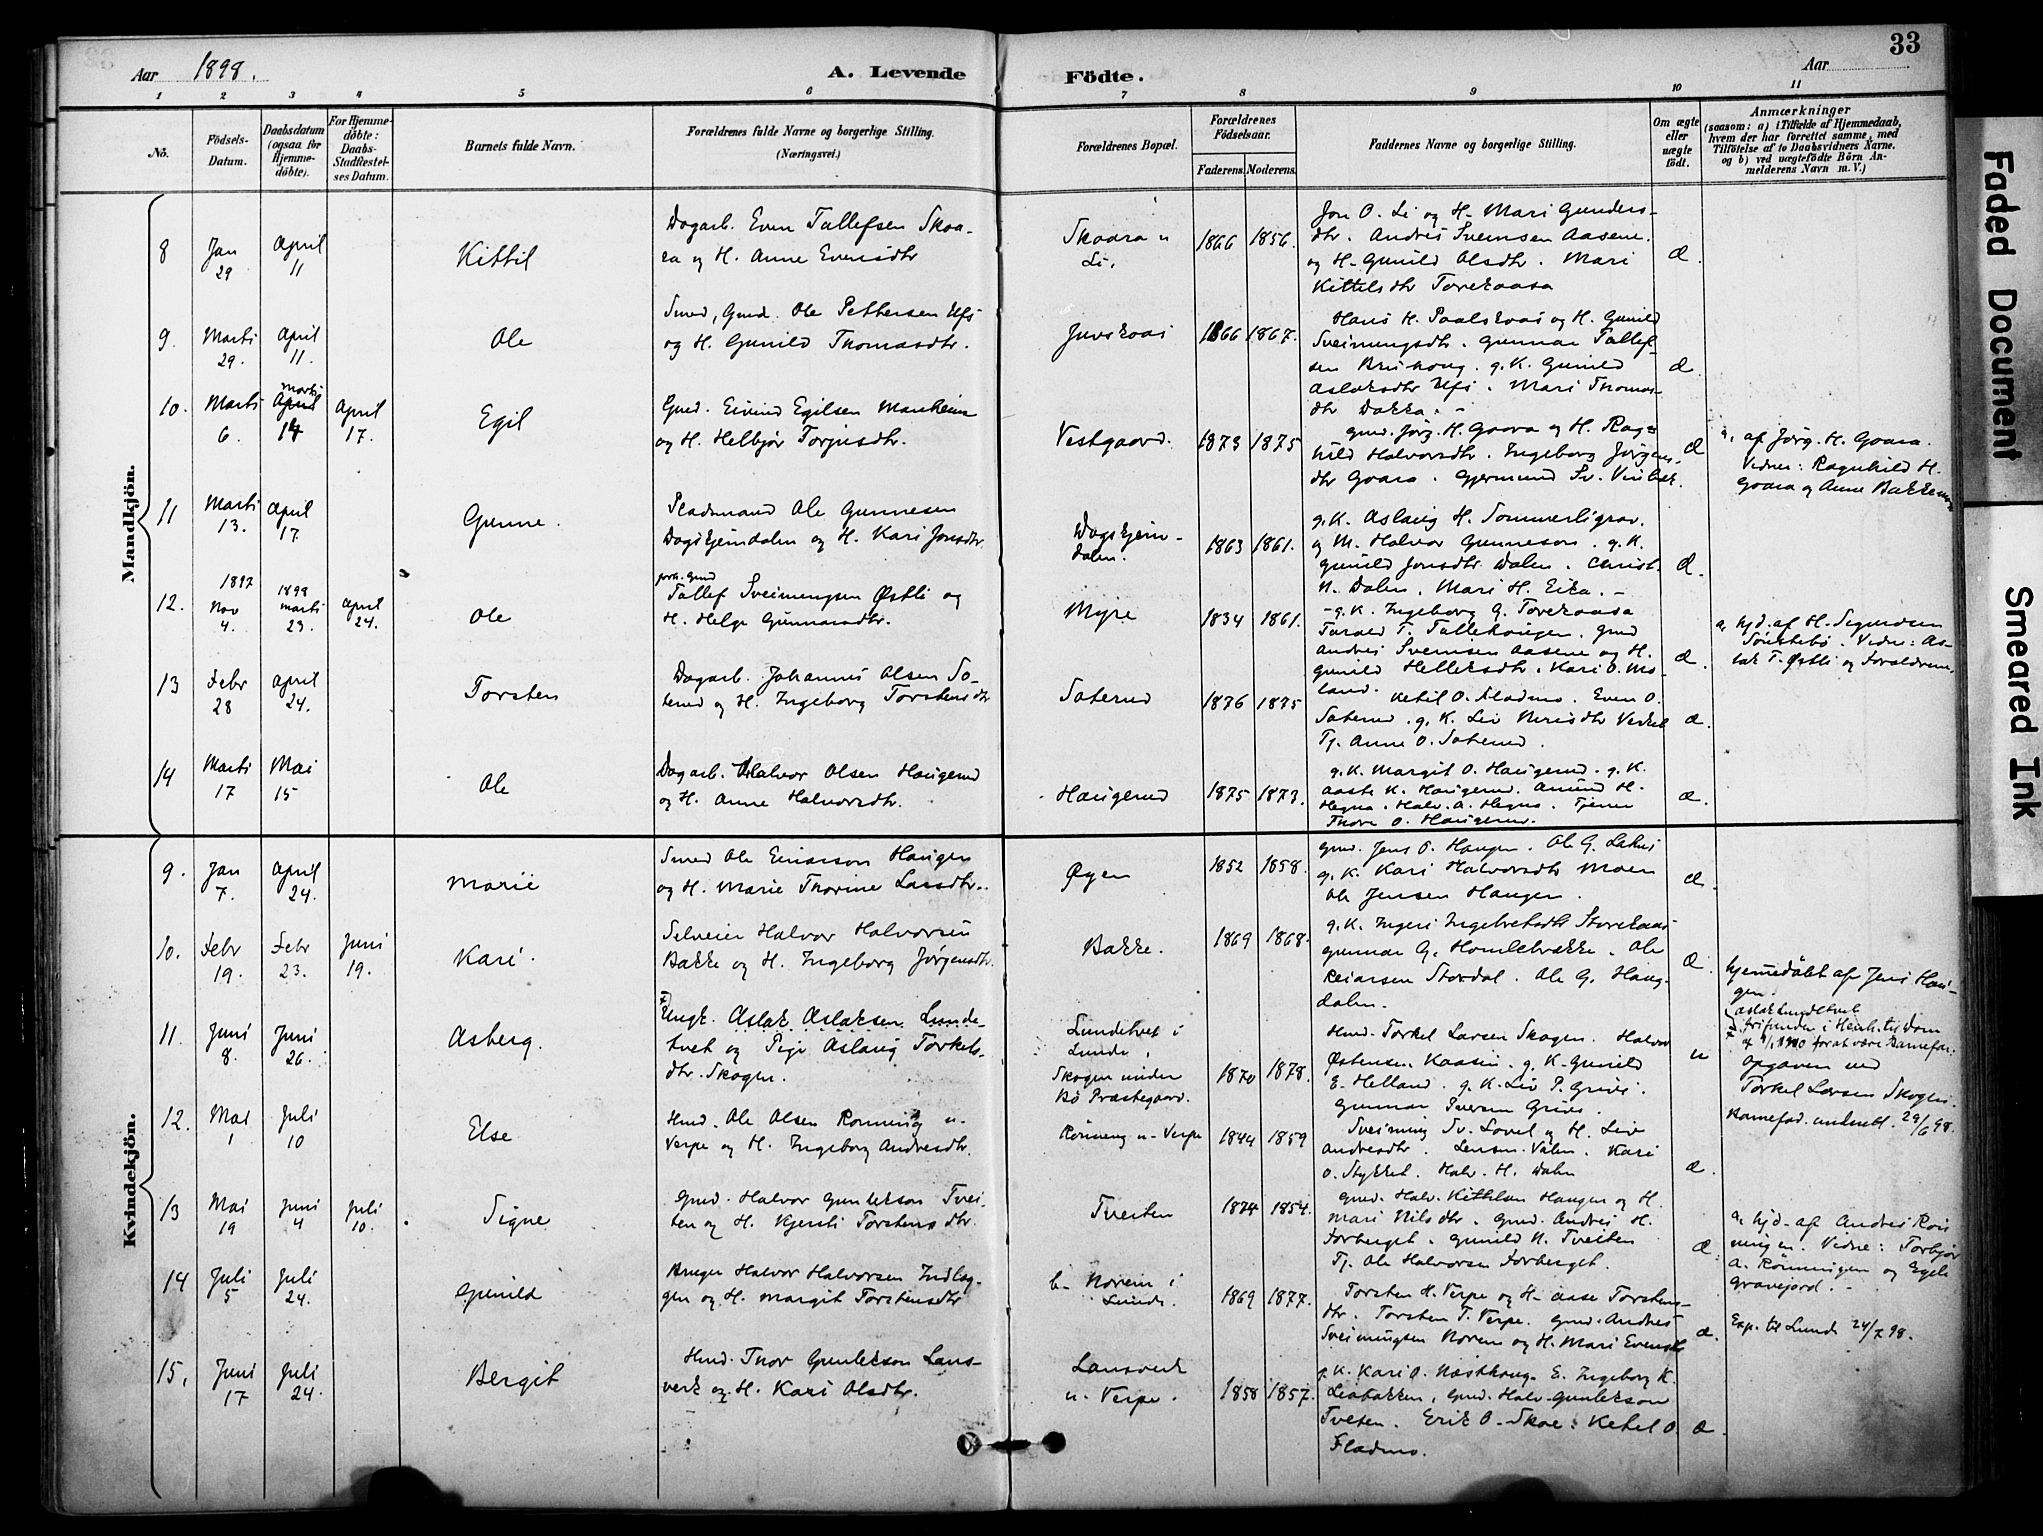 33
Aar 1898.
A. Levende Födte.
Aar
1 2 3 4 5 6 7 8 9 10 11
No.
Födsels-
Datum.
Daabsdatum
(ogsaa for
Hjemme-
døbte).
For Hjemme-
døbte:
Daabs-
Stadfæstel-
ses Datum.
Barnets fulde Navn.
Forældrenes fulde Navne og borgerlige Stilling.
(Næringsvei.)
Forældrenes Bopæl.
Forældrenes
Födselsaar.
Faderens. Moderens.
Faddernes Navne og borgerlige Stilling.
Om ægte
eller
uægte
födt.
Anmærkninger
(saasom: a) i Tilfælde af Hjemmedaab,
hvem der har forrettet samme, med
Tilföielse af to Daabsvidners Navne,
og b) ved uægtefödte Börn An-
melderens Navn m. V.)
Mandkjön.
8
Jan
29
April
11
Kittil
Dagarb. Even Tallefsen Skaa-
ra og H. Anne Evensdtr
Skaara u
Li.
1866 1856.
Jon O. Li og H. Mari Gunders-
dtr. Andres Sveinsen Aasene
og H. Gunild Olsdtr. Mari
Kittelsdtr Torekaasa
Æ.
9.
Marts
29.
April
11.
Ole
Smed, Gmd. Ole Pettersen Ufs
og H. Gunild Thomasdtr.
Juvskaas
1866 1867.
Hans H. Paalskaas og H. Gunild
Sveinungsdtr. Gunnar Tallef-
sen Brishaug. g. K. Gunild
Aslaksdtr Ufs. Mari Thomas-
dtr Dakka. -
Æ.
10.
Marts
6.
Marts
April
14
April
17.
Egil
Gmd. Eivind Egilsen Manheim
og H. Helbjør Torjusdtr.
Vestgaard.
1873 1875
Gmd. Jørg. H. Gaara og H. Rag-
nild Halvorsdtr. Ingeborg Jørgens-
dtr Gaara. Gjermund Sv. Vinbæk.
Æ
a, af Jørg. H. Gaara.
Vidner: Ragnhild H.
Gaara og Anne Bakkemoen
11
Marts
13.
April
17.
Gunne.
Pladsmand Ole Gunnesen
Dagskjeindalen og H. Kari Jonsdtr.
Dagskjein-
dalen.
1863 1861.
g. K. Aslaug H. Sommerligrav.
og M. Halvor Gunneson. g. K.
Gunild Jonsdtr Dalen. Christ.
N. Dalen. Mari H. Eika. -
Æ.
12.
1897
Nov
4.
1898
Marts
23.
April
24.
Ole
forh. Gmd
Tallef Sveinungsen Østli og
H. Helge Gunnarsdtr.
Myre
1834 1861.
- g. K. Ingeborg G. Torekaasa
Tarald T. Tallehaugen. Gmd
Andres Sveinsen Aasene og H.
Gunild Helleksdtr. Kari O. Mo-
land.
Æ.
a, hjd. af H. Sigurdsen
Sønstebø. Vidne: As-
lak T. Østli og Forældrene.
13
Febr
28
April
24.
Torsten
Dagarb. Johannes Olsen Sa-
terud og H. Ingeborg Torstensdtr
Saterud
1876 1875
Ketil O. Fladmo. Even O.
Saterud. g. K. Liv Nirisdtr
Tj. Anne O. Saterud.
Æ.
14
Marts
17
Mai
15
Ole
Dagarb. Halvor Olsen Haugerud
og H. Anne Halvorsdtr.
Haugerud
1875 1873.
g. K. Margit O. Haugerud. g. K.
Aaste K. Haugerud. Amund H.
Hegna. Halv. A. Hegna. Tjener
Thore O. Haugerud.
Æ.
Kvindekjön.
9.
Jan
7.
April
24.
Marie
Smed Ole Einarson Haugen
og H. Marie Thorine Larsdtr.
Øyen
1852 1858.
Gmd. Jens O. Haugen. Ole G. Lahus
g. K. Kari Halvorsdtr Moen
Ole Jensen Haugen.
Æ.
10.
Febr
19.
Febr
23.
Juni
19.
Kari.
Selveier Halvor Halvorsen
Bakke og H. Ingeborg Jørgensdtr.
Bakke.
1869 1868.
g. K. Ingeri Ingebretsdtr Storekaas
Gunnar G. Homlebrække. Ole
Reiarsen Stordal. Ole G. Haug-
dalen.
Æ.
Hjemmedøbt af Jens Hau-
gen.
11.
Juni
8.
Juni
26.
Asberg.
Ungk. Aslak Aslaksen Lunde-
tvet og Pige Aslaug Torkels-
dtr. Skogen.
Lundetvet i
Lunde,
Skogen under
Bø Præstegaard.
1870 1878.
Hmd. Torkel Larsen Skogen. Halvor
Østensen Kaasin. g. K. Gunild
E. Helland. g. K. Liv P. Grivi.
Gunnar Iversen Grivi.
u
Aslak Lundetvet
frifunden i Henh. til Dom
af 1/1 1900 for at være Barnefar.
Opgaven ved
Torkel Larsen Skogen.
Barnefad. underret. 29/6 98.
12.
Mai
1
Juli
10
Else
Hmd. Ole Olsen Rønning u-
Verpe og H. Ingeborg Andresdtr.
Rønning u- Verpe
1844 1859
Sveinung Sv. Lovel og H. Liv
Andresdtr. Lensm. Valen. Kari
O. Stykket. Halv. H. Dalen
Æ.
13
Mai
19
Juni
4
Juli
10.
Signe
Gmd. Halvor Gunlekson Tvei-
ten og H. Kjersti Torstensdtr.
Tveiten
1854.
Gmd. Halv. Kittilsen Haugen og H.
Mari Nilsdtr. Gmd. Andres H.
Forberget. Gunild N. Tveiten
Tj. Ole Halvorsen Forberget.
Æ.
a, hjd. af Andres Røn
ningen. Vidne: Torbjør
A. Rønningen og Egil
Gravejord. -
14
Juli
5
Juli
24.
Gunild
Bruger Halvor Halvorsen Indlæg-
gen og H. Margit Torstensdtr
b- Norem i
Lunde.
1869 1877.
Torsten H. Verpe og H. Aase Torstens-
dtr. Torsten T. Verpe. Gmd. Andres
Sveinungsen Norem og H. Mari Evensdtr
Æ.
Exp. til Lunde 24/7 98.
15.
Juni
17
Juli
24.
Bergit
Hmd. Thor Gunlekson Lans-
verk og H. Kari Olsdtr.
Lansverk
u. Verpe.
1858 1857.
g. K. Kari O. Næsthaug. E. Ingeborg K.
Liabakken, Gmd. Halv. Gunlekson
Tveten. Erik O. Skoe: Ketel O
Fladmo.
Æ.
Faded Document
Smeared Ink